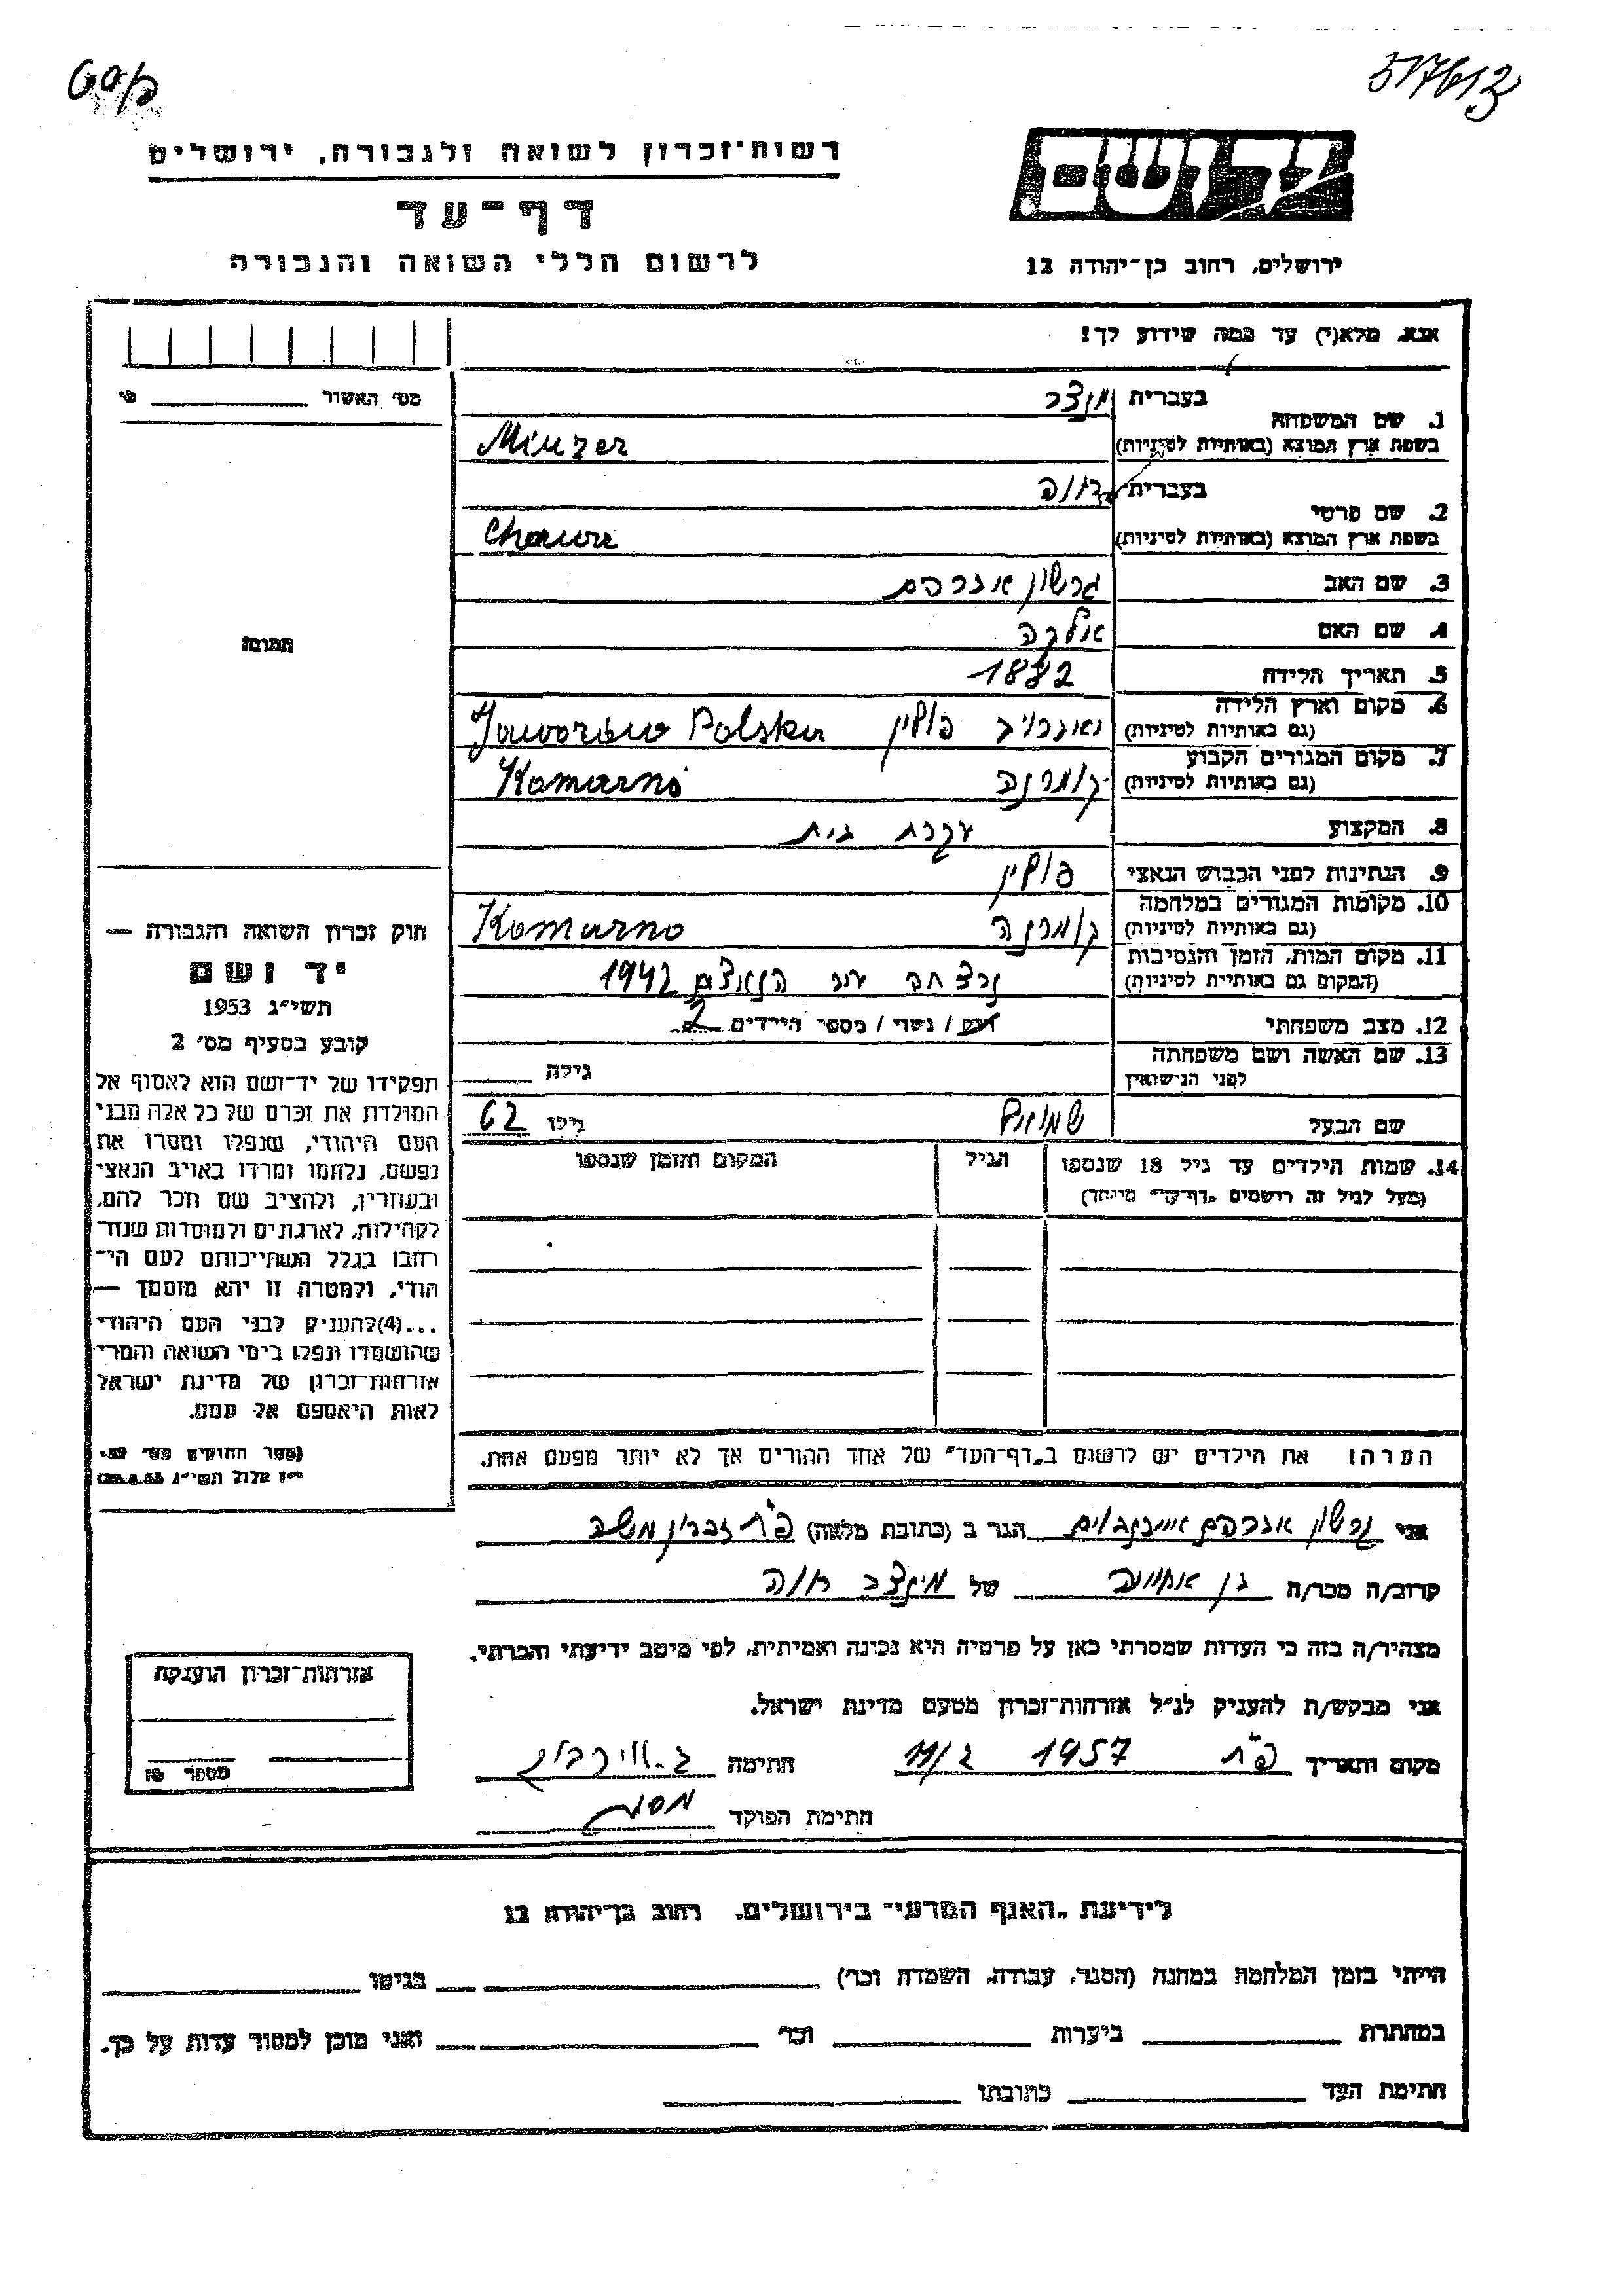 517613
רשות־זכרון לשואה ולגבורה, ירושלים
דף־עד
לרשום חללי השואה והגבורה
ידושם
ירושלים, רחוב בן־יהודה 12
אנא, מלא(י) עד כמה שידוע לך!
מס׳ האשור
בעברית
מנצר
1. שם המשפחה
בשפת ארץ המוצא (באותיות לטיניות)
Minzer
בעברית
חוה
2. שם פרטי
בשפת ארץ המוצא (באותיות לטיניות)
Chawe
3. שם האב
גרשון אברהם
4. שם האם
אלקה
5. תאריך הלידה
1882
6. מקום וארץ הלידה
(גם באותיות לטיניות)
פולין Jaworów Polska
7. מקום המגורים הקבוע
(גם באותיות לטיניות)
קומרנה Komarno
8. המקצוע
עקרת בית
9. הנתינות לפני הכבוש הנאצי
פולין
10. מקומות המגורים במלחמה
(גם באותיות לטיניות)
קומרנה Komarno
11. מקום המות, הזמן והנסיבות
(המקום גם באותיות לטיניות)
נרצחה ע״י הנאצים 1942
12. מצב משפחתי
רוק / נשוי / מספר הילדים 2
13. שם האשה ושם משפחתה
לפני הנישואין
גילה
שם הבעל
שמואל
גילו 62
14. שמות הילדים עד גיל 18 שנספו
(מעל לגיל זה רושמים „דף־עד״ מיוחד)
הגיל
המקום והזמן שנספו
הערה! את הילדים יש לרשום ב„דף־העד״ של אחד ההורים אך לא יותר מפעם אחת.
תמונה
חוק זכרון השואה והגבורה —
יד ושם
תשי״ג 1953
קובע בסעיף מס׳ 2
תפקידו של יד־ושם הוא לאסוף אל
המולדת את זכרם של כל אלה מבני
העם היהודי, שנפלו ומסרו את
נפשם, נלחמו ומרדו באויב הנאצי
ובעוזריו, ולהציב שם וזכר להם,
לקהילות, לארגונים ולמוסדות שנח־
רבו בגלל השתייכותם לעם הי־
הודי, ולמטרה זו יהא מוסמך —
...(4) להעניק לבני העם היהודי
שהושמדו ונפלו בימי השואה והמרי
אזרחות־זכרון של מדינת ישראל
לאות היאספם אל עמם.
(ספר החוקים מס׳ 132.
י״ז אלול תשי״ג 28.8.53)
אני גרשון אברהם הגר ב (כתובת מלאה) פ״ת זכרון משה
קרוב/ה מכר/ה בן אחותה של מינצר חוה
מצהיר/ה בזה כי העדות שמסרתי כאן על פרטיה היא נכונה ואמיתית, לפי מיטב ידיעתי והכרתי.
אני מבקש/ת להעניק לנ״ל אזרחות־זכרון מטעם מדינת ישראל.
מקום ותאריך פ״ת 1957
חתימה
חתימת הפוקד
אזרחות־זכרון הוענקה
מספר
לידיעת „האגף המדעי״ בירושלים, רחוב בן־יהודה 12
הייתי בזמן המלחמה במחנה (הסגר, עבודה, השמדה וכר׳)
בגיטו
במחתרת
ביערות
וכר׳
ואני מוכן למסור עדות על כך.
חתימת העד
כתובתו